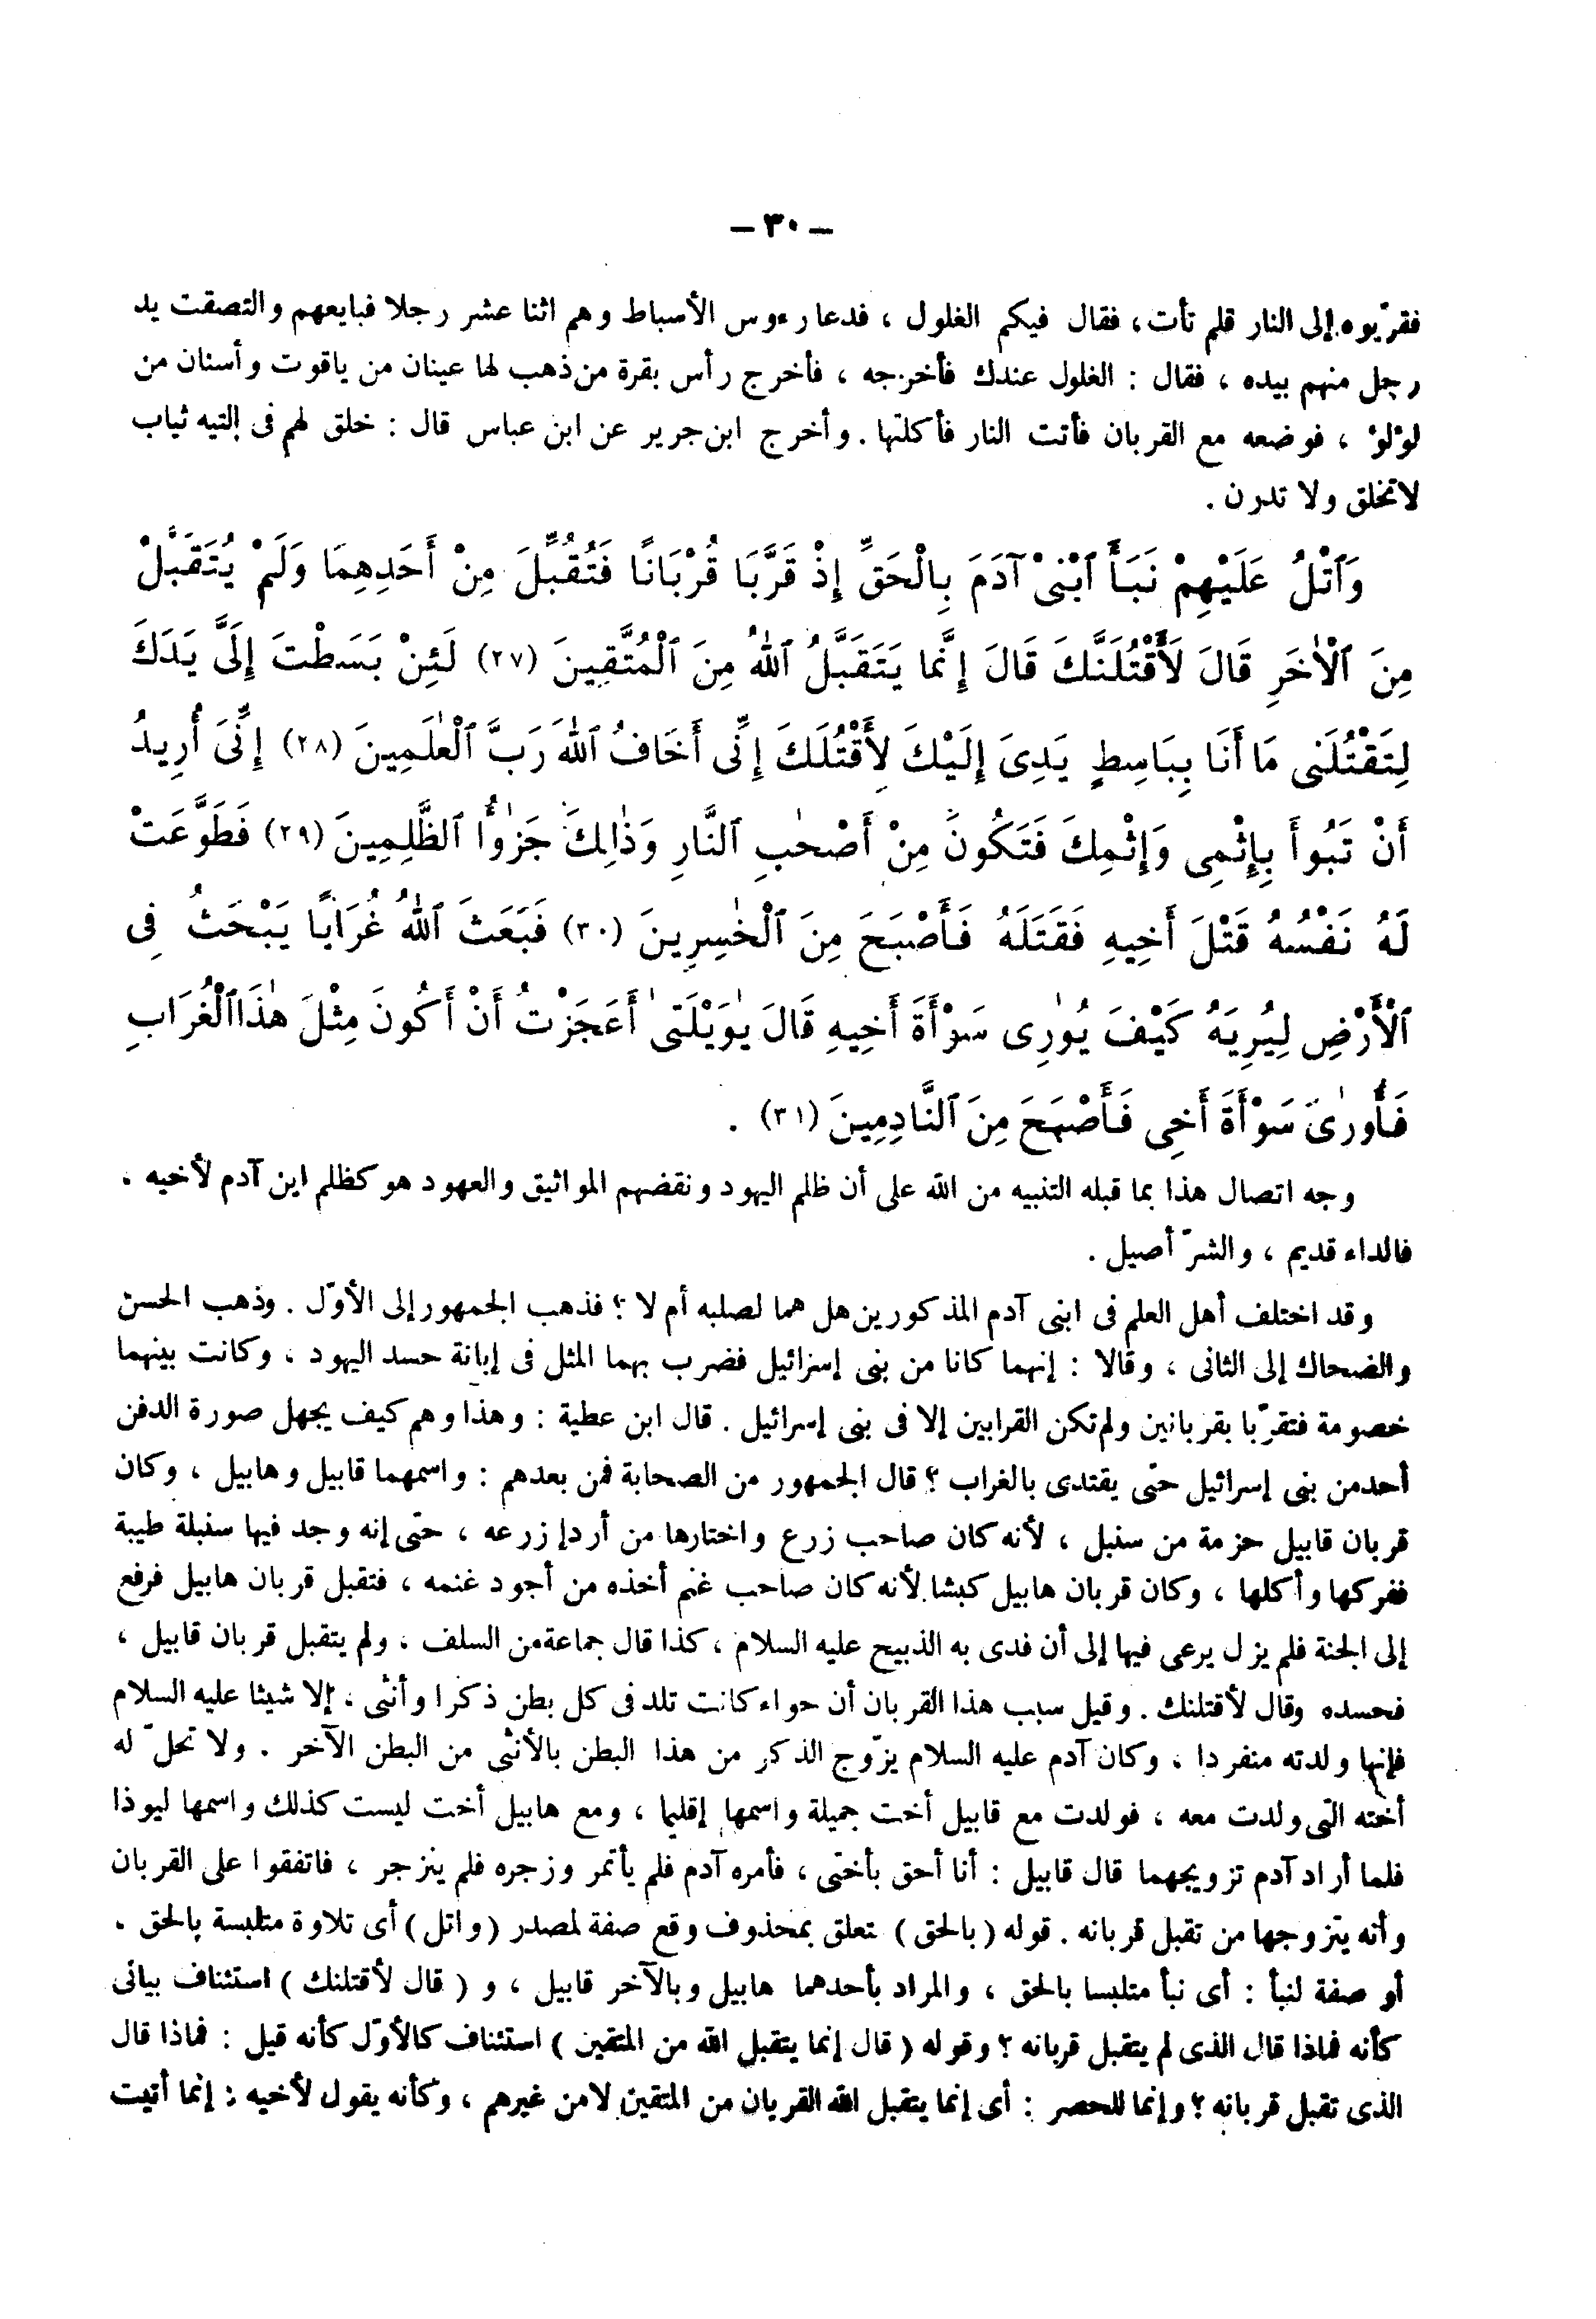 – ٣٠ –
فقرّبوه إلى النار فلم تأت، فقال فيكم الغلول ، فدعا رءوس الأسباط وهم اثنا عشر رجلا فبايعهم والتصقت يد
رجل منهم بيده ، فقال : الغلول عندك فأخرجه ، فأخرج رأس بقرة من ذهب لها عينان من ياقوت وأسنان من
لؤلؤ ، فوضعه مع القربان فأتت النار فأكلتها . وأخرج ابن جرير عن ابن عباس قال : خلق لهم فى التيه ثياب
لا تخلق ولا تدرن .
وَٱتْلُ عَلَيْهِمْ نَبَأَ ٱبْنَىْ آدَمَ بِالْحَقِّ إِذْ قَرَّبَا قُرْبَانًا فَتُقُبِّلَ مِنْ أَحَدِهِمَا وَلَمْ يُتَقَبَّلْ
مِنَ ٱلْأٰخَرِ قَالَ لَأَقْتُلَنَّكَ قَالَ إِنَّمَا يَتَقَبَّلُ ٱللهُ مِنَ ٱلْمُتَّقِينَ (٢٧) لَئِنْ بَسَطْتَ إِلَىَّ يَدَكَ
لِتَقْتُلَنِى مَا أَنَا بِبَاسِطٍ يَدِىَ إِلَيْكَ لِأَقْتُلَكَ إِنِّى أَخَافُ ٱللهَ رَبَّ ٱلْعٰلَمِينَ (٢٨) إِنِّىَ أُرِيدُ
أَنْ تَبُوأَ بِإِثْمِى وَإِثْمِكَ فَتَكُونَ مِنْ أَصْحٰبِ ٱلنَّارِ وَذٰلِكَ جَزٰؤُا ٱلظَّلِمِينَ (٢٩) فَطَوَّعَتْ
لَهُ نَفْسُهُ قَتْلَ أَخِيهِ فَقَتَلَهُ فَأَصْبَحَ مِنَ ٱلْخٰسِرِينَ (٣٠) فَبَعَثَ ٱللهُ غُرَابًا يَبْحَثُ فِى
ٱلْأَرْضِ لِيُرِيَهُ كَيْفَ يُوٰرِى سَوْأَةَ أَخِيهِ قَالَ يٰوَيْلَتىٰ أَعَجَزْتُ أَنْ أَكُونَ مِثْلَ هٰذَا ٱلْغُرَابِ
فَأُورٰىَ سَوْأَةَ أَخِى فَأَصْبَحَ مِنَ ٱلنَّادِمِينَ (٣١) .
وجه اتصال هذا بما قبله التنبيه من الله على أن ظلم اليهود ونقضهم المواثيق والعهود هو كظلم ابن آدم لأخيه ،
فالداء قديم ، والشرّ أصيل .
وقد اختلف أهل العلم فى ابنى آدم المذكورين هل هما لصلبه أم لا ؟ فذهب الجمهور إلى الأوّل . وذهب الحسن
والضحاك إلى الثانى ، وقالا : إنهما كانا من بنى إسرائيل فضرب بهما المثل فى إبانة حسد اليهود ، وكانت بينهما
خصومة فتقرّبا بقربانين ولم تكن القرابين إلا فى بنى إسرائيل . قال ابن عطية : وهذا وهم كيف يجهل صورة الدفن
أحد من بنى إسرائيل حتى يقتدى بالغراب ؟ قال الجمهور من الصحابة فمن بعدهم : واسمهما قابيل وهابيل ، وكان
قربان قابيل حزمة من سنبل ، لأنه كان صاحب زرع واختارها من أردإ زرعه ، حتى إنه وجد فيها سنبلة طيبة
ففركها وأكلها ، وكان قربان هابيل كبشا لأنه كان صاحب غنم أخذه من أجود غنمه ، فتقبل قربان هابيل فرفع
إلى الجنة فلم يزل يرعى فيها إلى أن فدى به الذبيح عليه السلام ، كذا قال جماعة من السلف ، ولم يتقبل قربان قابيل ،
فحسده وقال لأقتلنك . وقيل سبب هذا القربان أن حواء كانت تلد فى كل بطن ذكرا وأنثى ، إلا شيئا عليه السلام
فإنها ولدته منفردا ، وكان آدم عليه السلام يزّوج الذكر من هذا البطن بالأنثى من البطن الآخر . ولا تحلّ له
أخته التى ولدت معه ، فولدت مع قابيل أخت جميلة واسمها إقليما ، ومع هابيل أخت ليست كذلك واسمها ليوذا
فلما أراد آدم تزويجهما قال قابيل : أنا أحق بأختى ، فأمره آدم فلم يأتمر وزجره فلم ينزجر ، فاتفقوا على القربان
وأنه يتزوجها من تقبل قربانه . قوله ( بالحق ) متعلق بمحذوف وقع صفة لمصدر ( واتل ) أى تلاوة متلبسة بالحق ،
أو صفة لنبأ : أى نبأ متلبسا بالحق ، والمراد بأحدهما هابيل وبالآخر قابيل ، و ( قال لأقتلنك ) استئناف بيانى
كأنه فماذا قال الذى لم يتقبل قربانه ؟ وقوله ( قال إنما يتقبل الله من المتقين ) استئناف كالأوّل كأنه قيل : فماذا قال
الذى تقبل قربانه ؟ وإنما للحصر : أى إنما يتقبل الله القربان من المتقين لا من غيرهم ، وكأنه يقول لأخيه : إنما أتيت